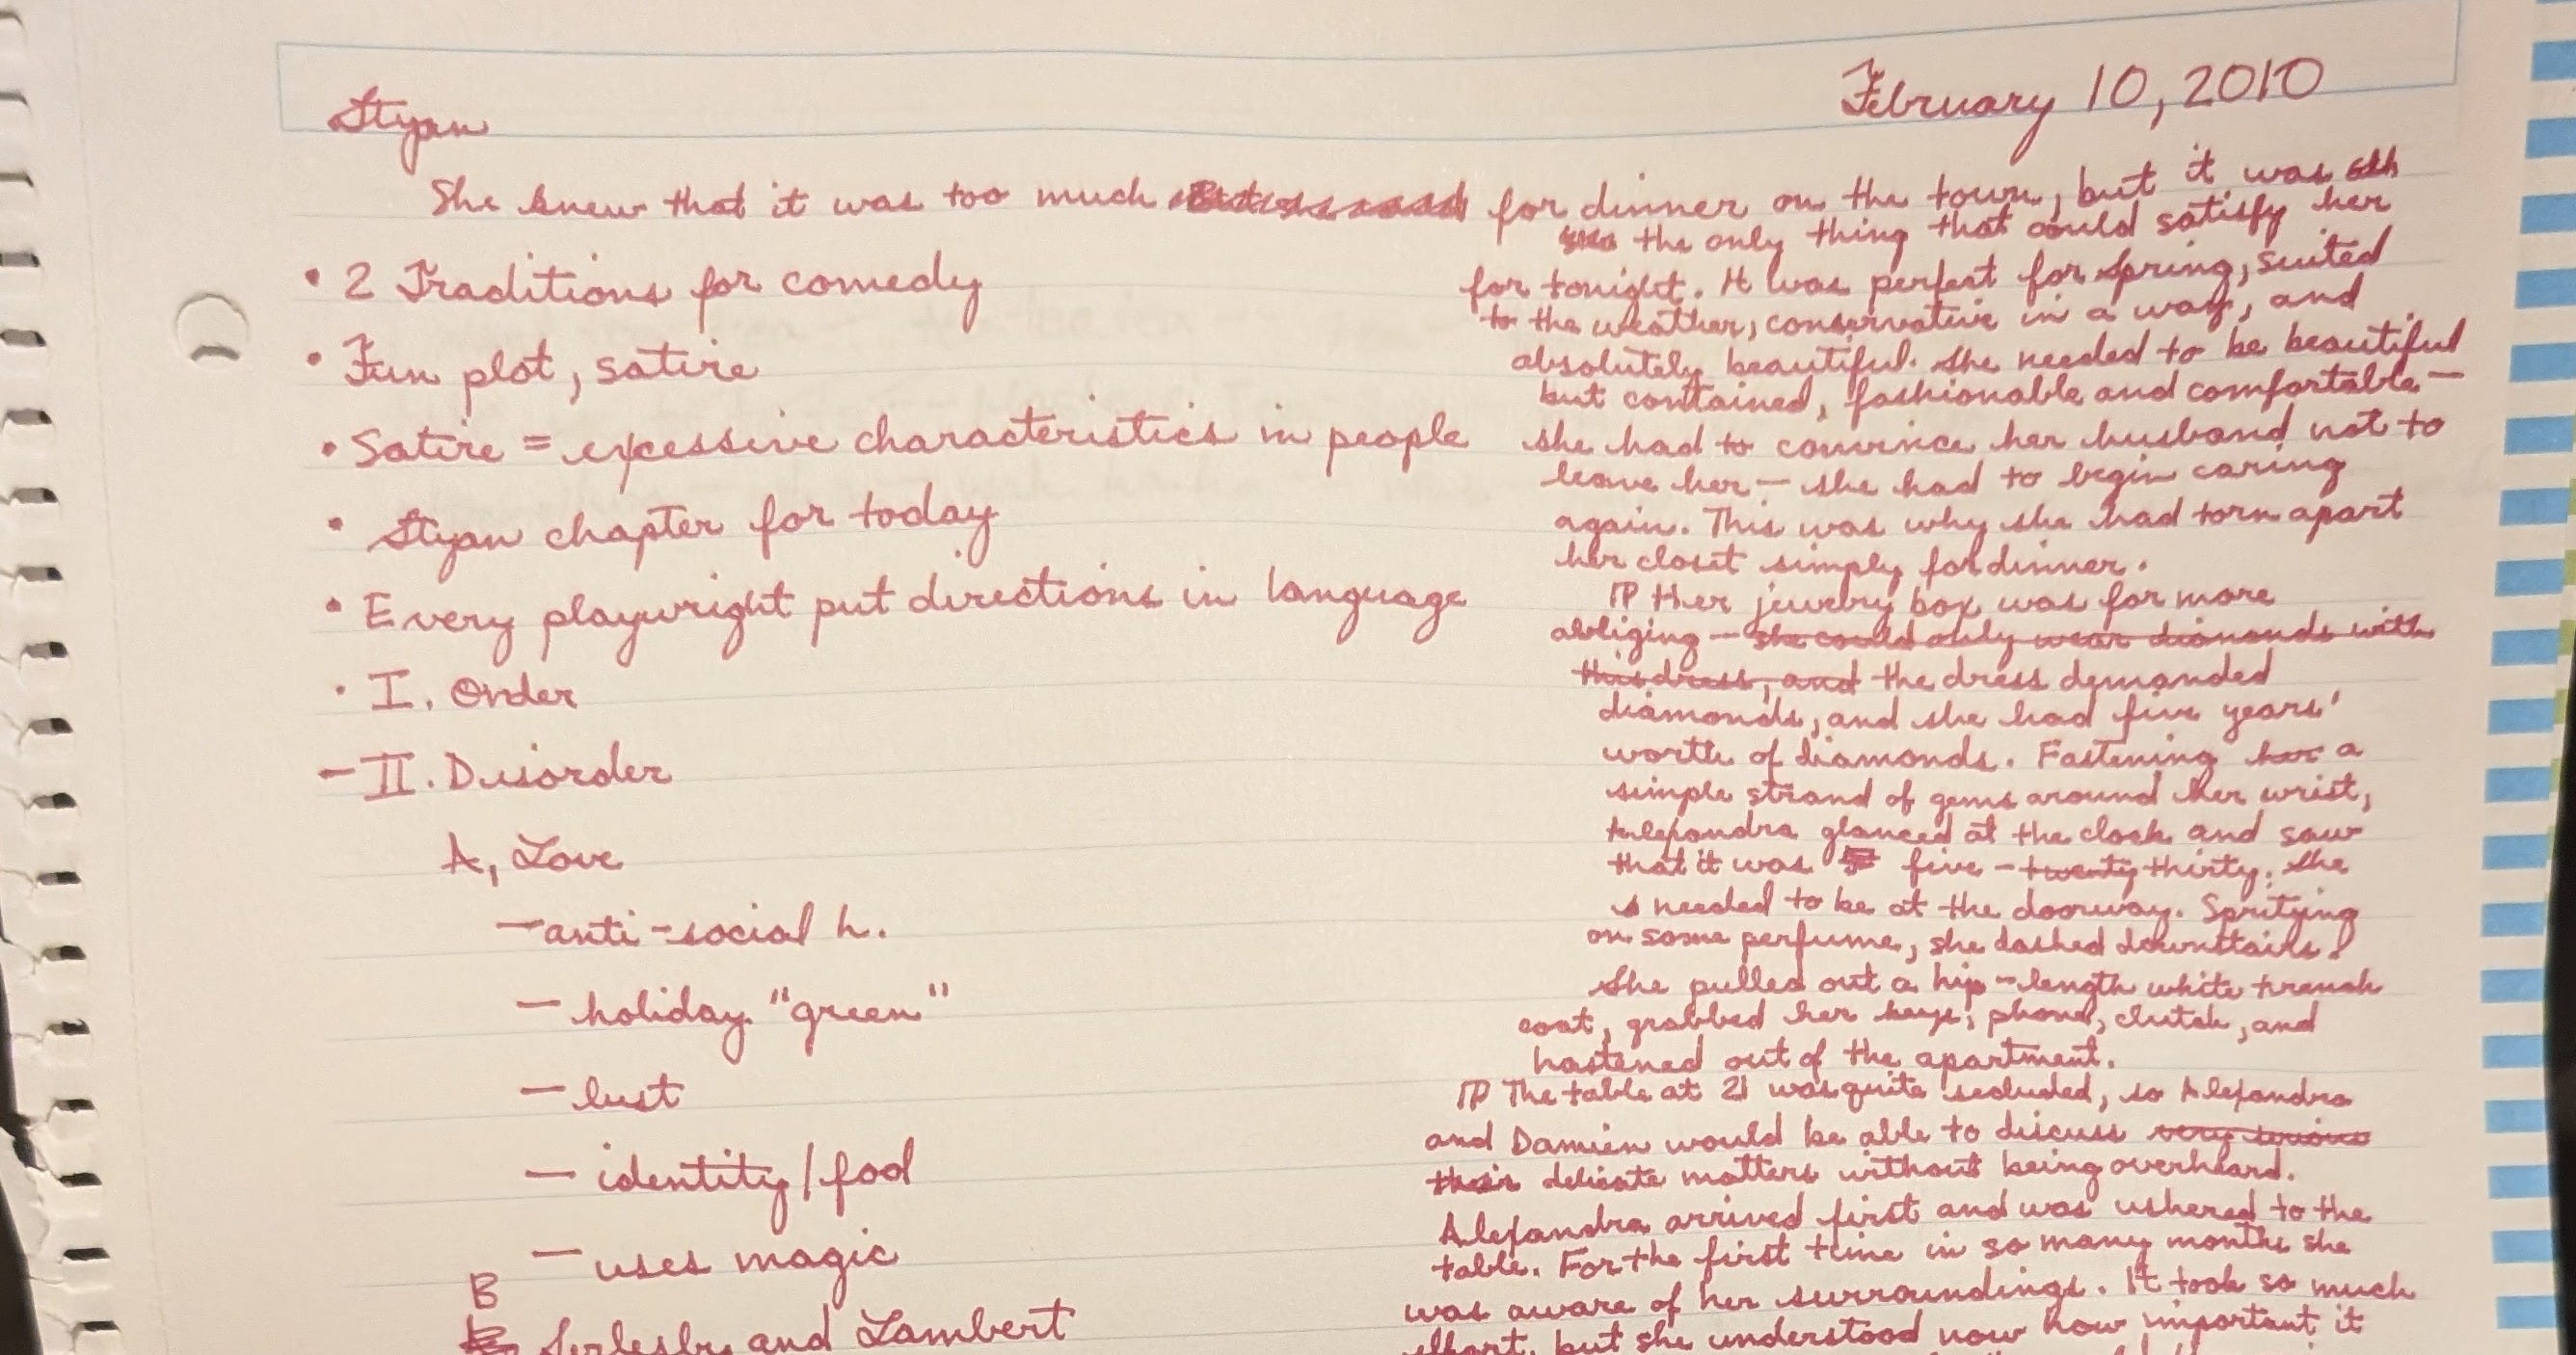 February 10, 2010
Styan
She knew that it was too much for dinner on the town, but it was
the only thing that could satisfy her
for tonight. It was perfect for spring, suited
to the weather, conservative in a way, and
absolutely beautiful. She needed to be beautiful
but contained, fashionable and comfortable—
she had to convince her husband not to
leave her — she had to begin caring
again. This was why she had torn apart
her closet simply for dinner.
¶ Her jewelry box was far more
obliging — she could only wear diamonds with
this dress, and the dress demanded
diamonds, and she had five years'
worth of diamonds. Fastening her a
simple strand of gems around her wrist,
Alexandra glanced at the clock and saw
that it was five-twenty thirty. She
needed to be at the doorway. Spritzing
on some perfume, she dashed downstairs.
She pulled out a hip-length white trench
coat, grabbed her keys, phone, clutch, and
hastened out of the apartment.
¶ The table at 21 was quite secluded, so Alexandra
and Damien would be able to discuss very serious
their delicate matters without being overheard.
Alexandra arrived first and was ushered to the
table. For the first time in so many months she
was aware of her surroundings. It took so much
effort, but she understood now how important it
• 2 Traditions for comedy
• Fun plot, satire
• Satire = excessive characteristics in people
• Styan chapter for today
• Every playwright put directions in language
• I. Order
— II. Disorder
A, Love
— anti-social h.
— holiday "green"
— lust
— identity/fool
— uses magic
B
and Lambert